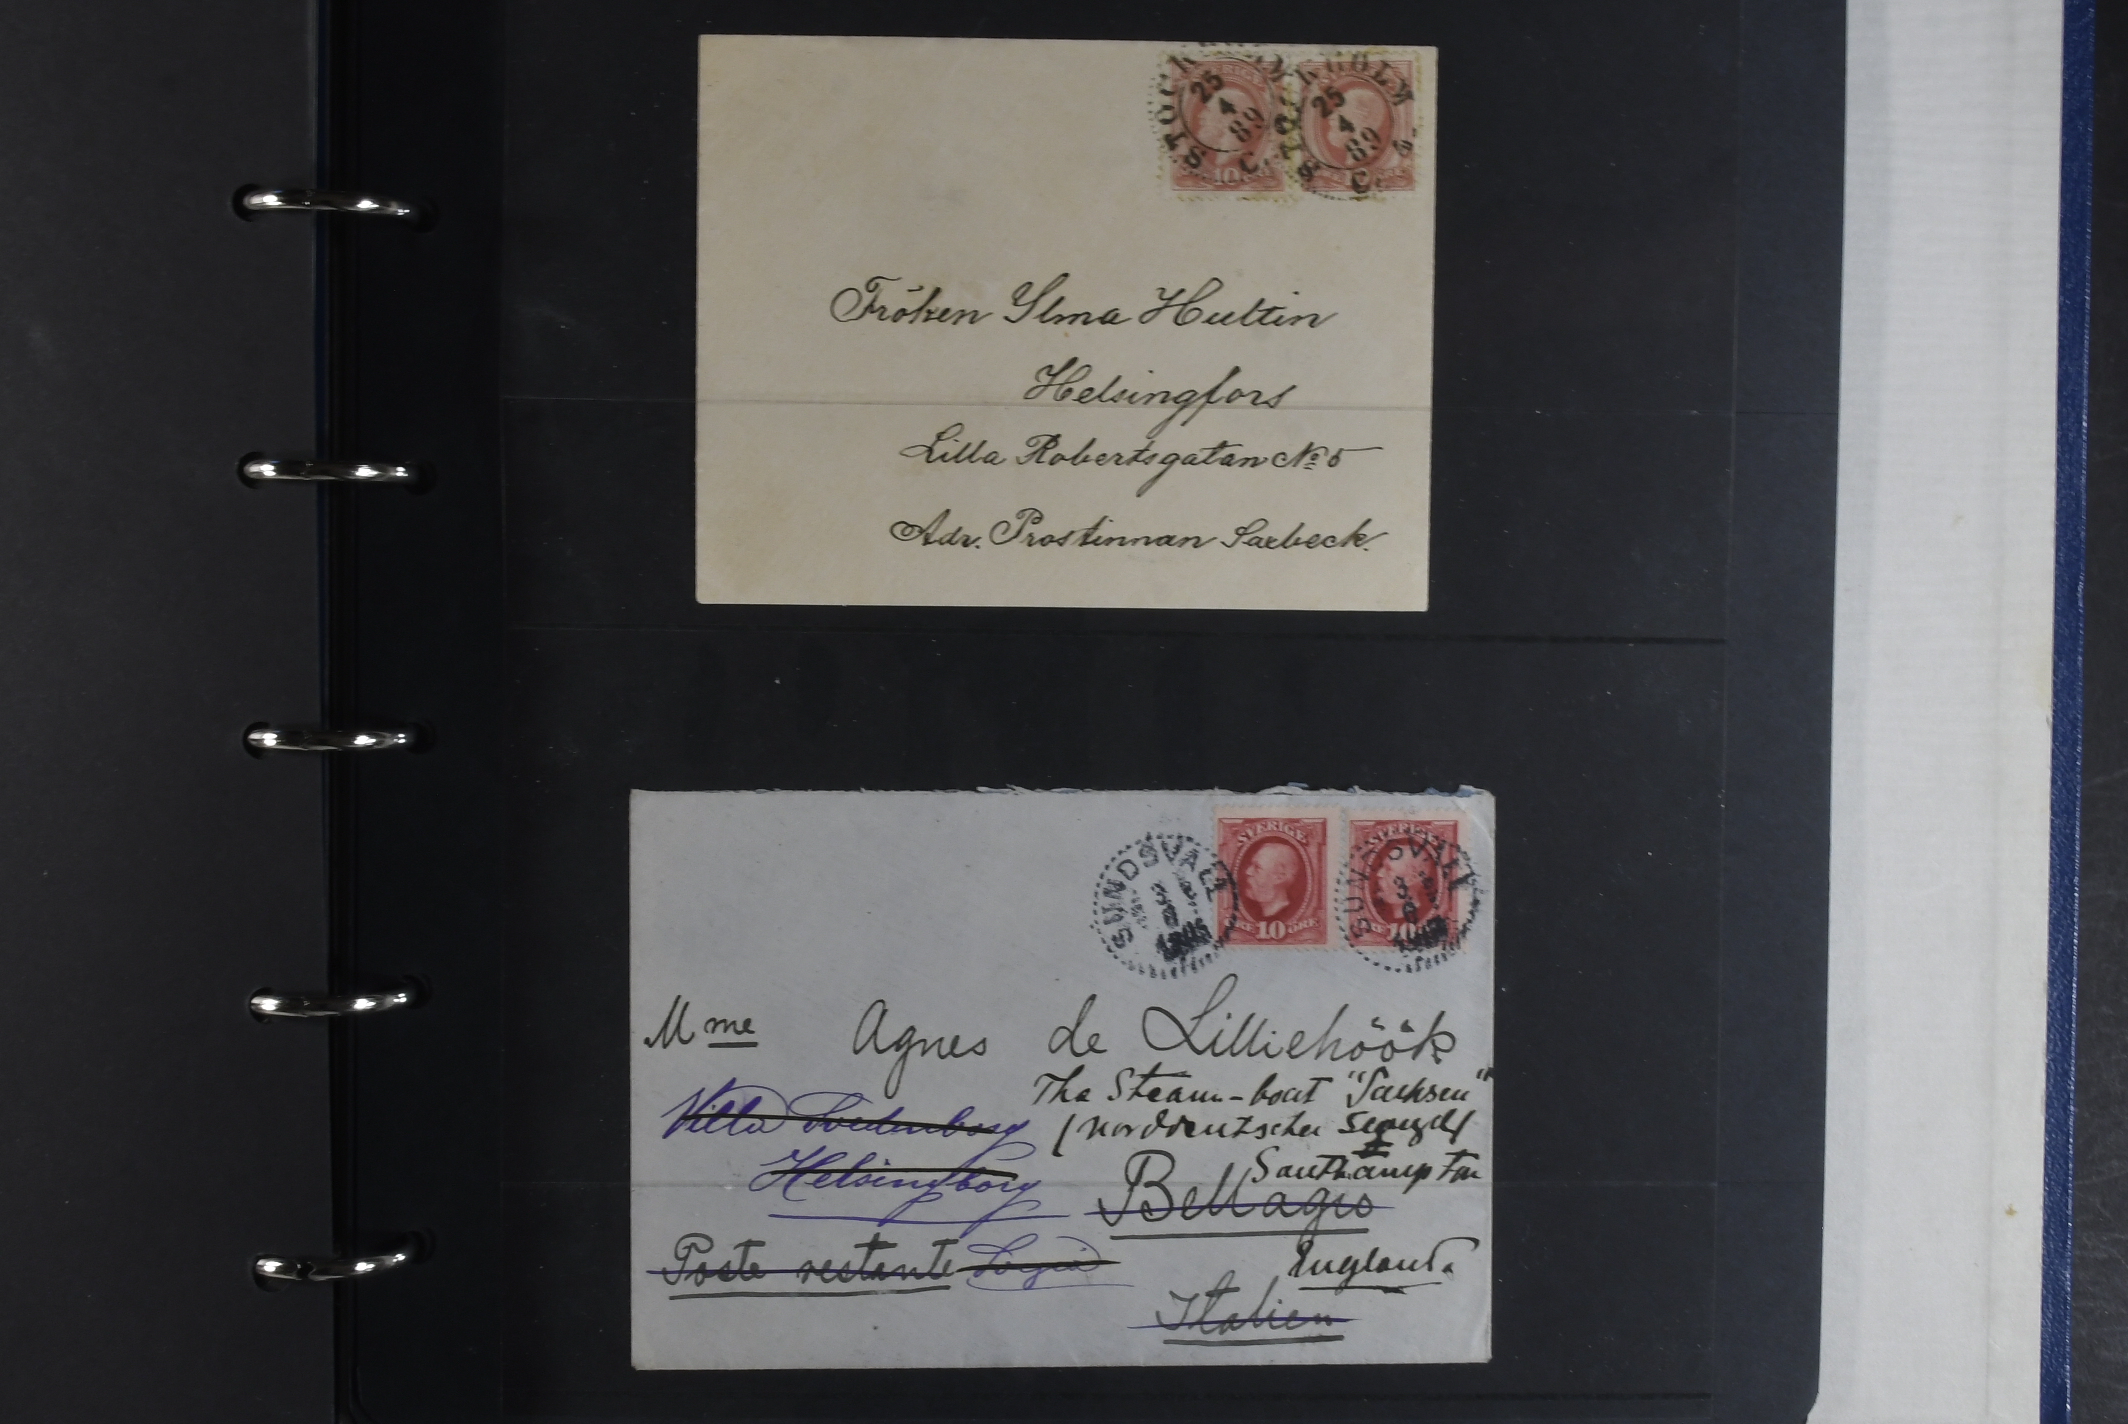 STOCKHOLM
25
4
89
C.
STOCKHOLM
25
4
89
C.
10
ÖRE
Fröken Ilma Hultin
Helsingfors
Lilla Robertsgatan No 5
Adr. Prostinnan Saxbeck.
SUNDSVALL
SVERIGE
10 ÖRE
SUNDSVALL
SVERIGE
ÖRE 10
Mme Agnes de Lilliehöök
The Steam-boat "Sachsen"
Villa
(Norddeutscher
Helsingborg
Southampton
Bellagio
Poste restante
England.
Italien